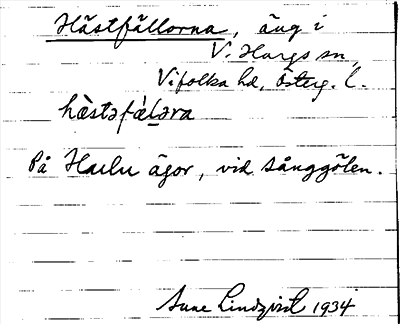 Hästfällorna, äng i
V. Hargs sn,
Vifolka hd, Österg. l.
hὲstəfάlˌəra
På ägor, vid Sånggölen.
Sune Lindqvist 1934